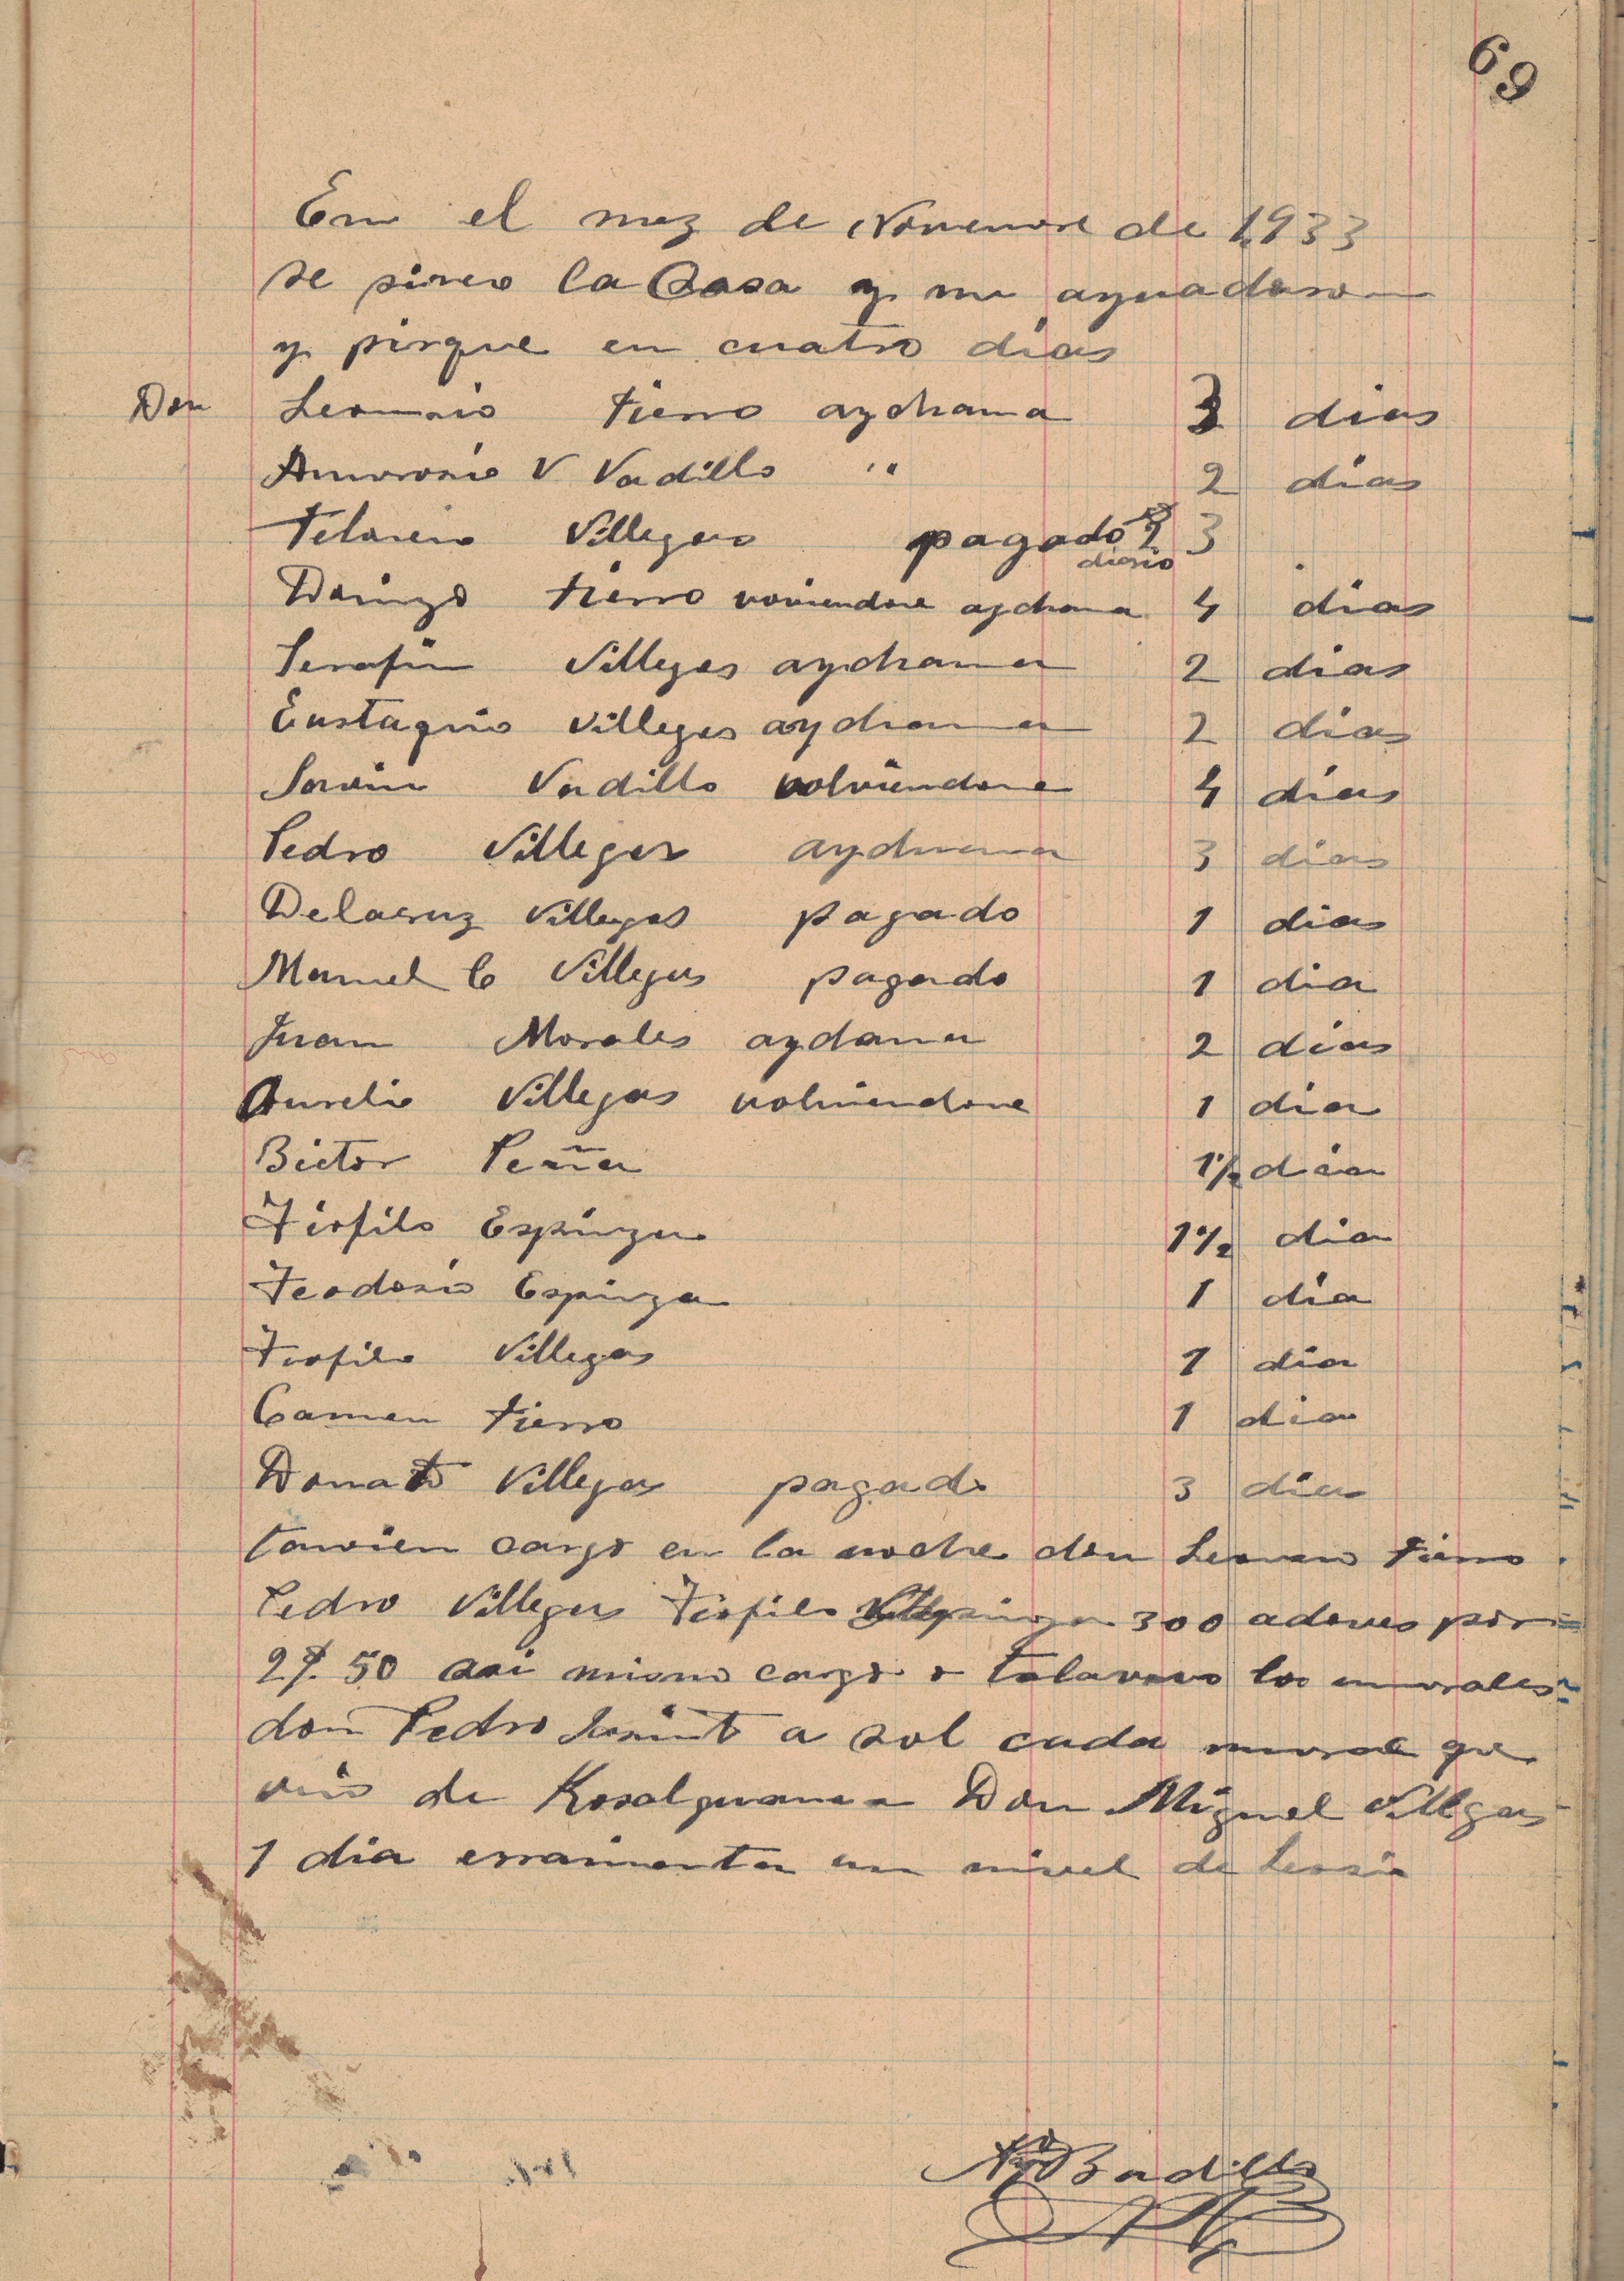 69
En el mez de Novienvre de 1933
se pirco la Casa y me ayuadaron
y pirque en cuatro dias
Don Leoncio Fierro aychama 3 dias
Amvrosio V Vadillo " 2 dias
Villegas pagado 3
diario
Dainzo Fierro volviendose aychama 4 dias
Serafin Villegas aychama 2 dias
Eustaquio Villegas aychama 2 dias
Savin Vadillo volviendose 4 dias
Pedro Villegas aychama 3 dias
Delacruz Villegas pagado 1 dias
Manuel C Villegas pagado 1 dia
Juan Morales aydama 2 dias
Aurelio Villegas volviendose 1 dia
Bictor Peña 1½ dia
Tiofilo Espinza 1½ dia
Teodosio Espinza 1 dia
Tiofilo Villegas 1 dia
Carmen Fierro 1 dia
Donato Villegas pagado 3 dias
tanvien cargo en la noche don Fierro
Pedro Villegas Tiofilo 300 adoves por
2 50 asi mismo cargo los unvrales
don Pedro a sol cada unvral que
vino de Don Miguel Villegas
1 dia erramienta un nivel de
Badillo